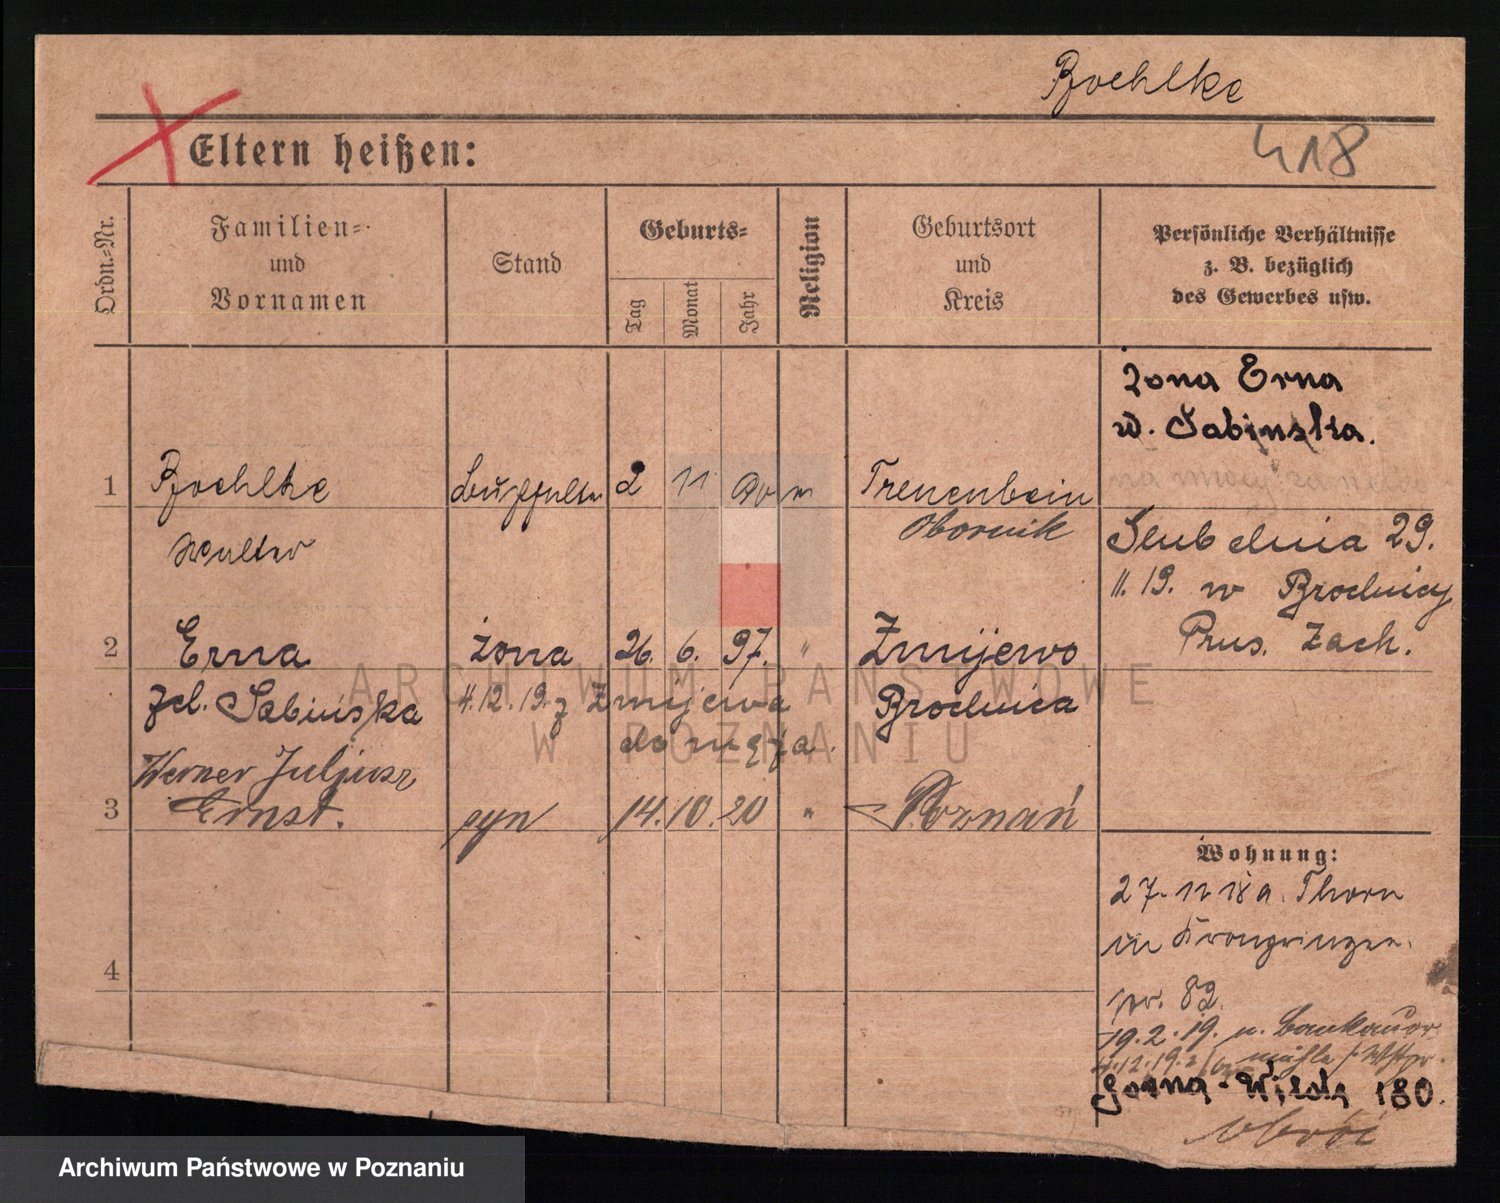 Boehlke
418
Eltern heißen:
Ordn.-Nr.
Familien-
und
Vornamen
Stand
Geburts-
Tag
Monat
Jahr
Religion
Geburtsort
und
Kreis
Persönliche Verhältnisse
z. B. bezüglich
des Gewerbes usw.
żona Erna
w. Sabinska.
1 Boehlke 2 11 Treuenbein
Walter Obornik
Ślub dnia 29.
11. 19. w Brodnicy
Prus. Zach.
2 Erna żona 26. 6. 97. " Żmijewo
zd. Sabińska 4.12.19. z Żmijewa Brodnica
do męża.
Werner Juljusz
3 Ernst. syn 14. 10. 20 " Poznań
4
Wohnung:
27. 11 18 a. Thorn
in Kronprinzen
str. 82.
19.2.19. n.
4.12.19. mühle /Wstpr.
Górna-Wilda 180.
obróć
ARCHIWUM PAŃSTWOWE
W POZNANIU
Archiwum Państwowe w Poznaniu